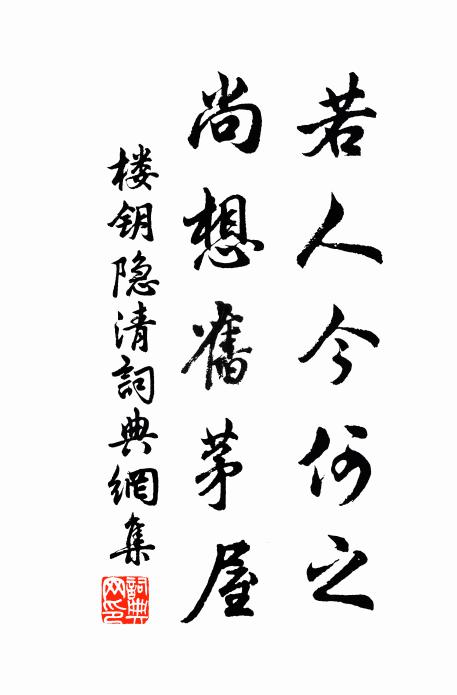 若人今何之
尚想舊茅屋
楼钥隐清詞典網集
詞典网印